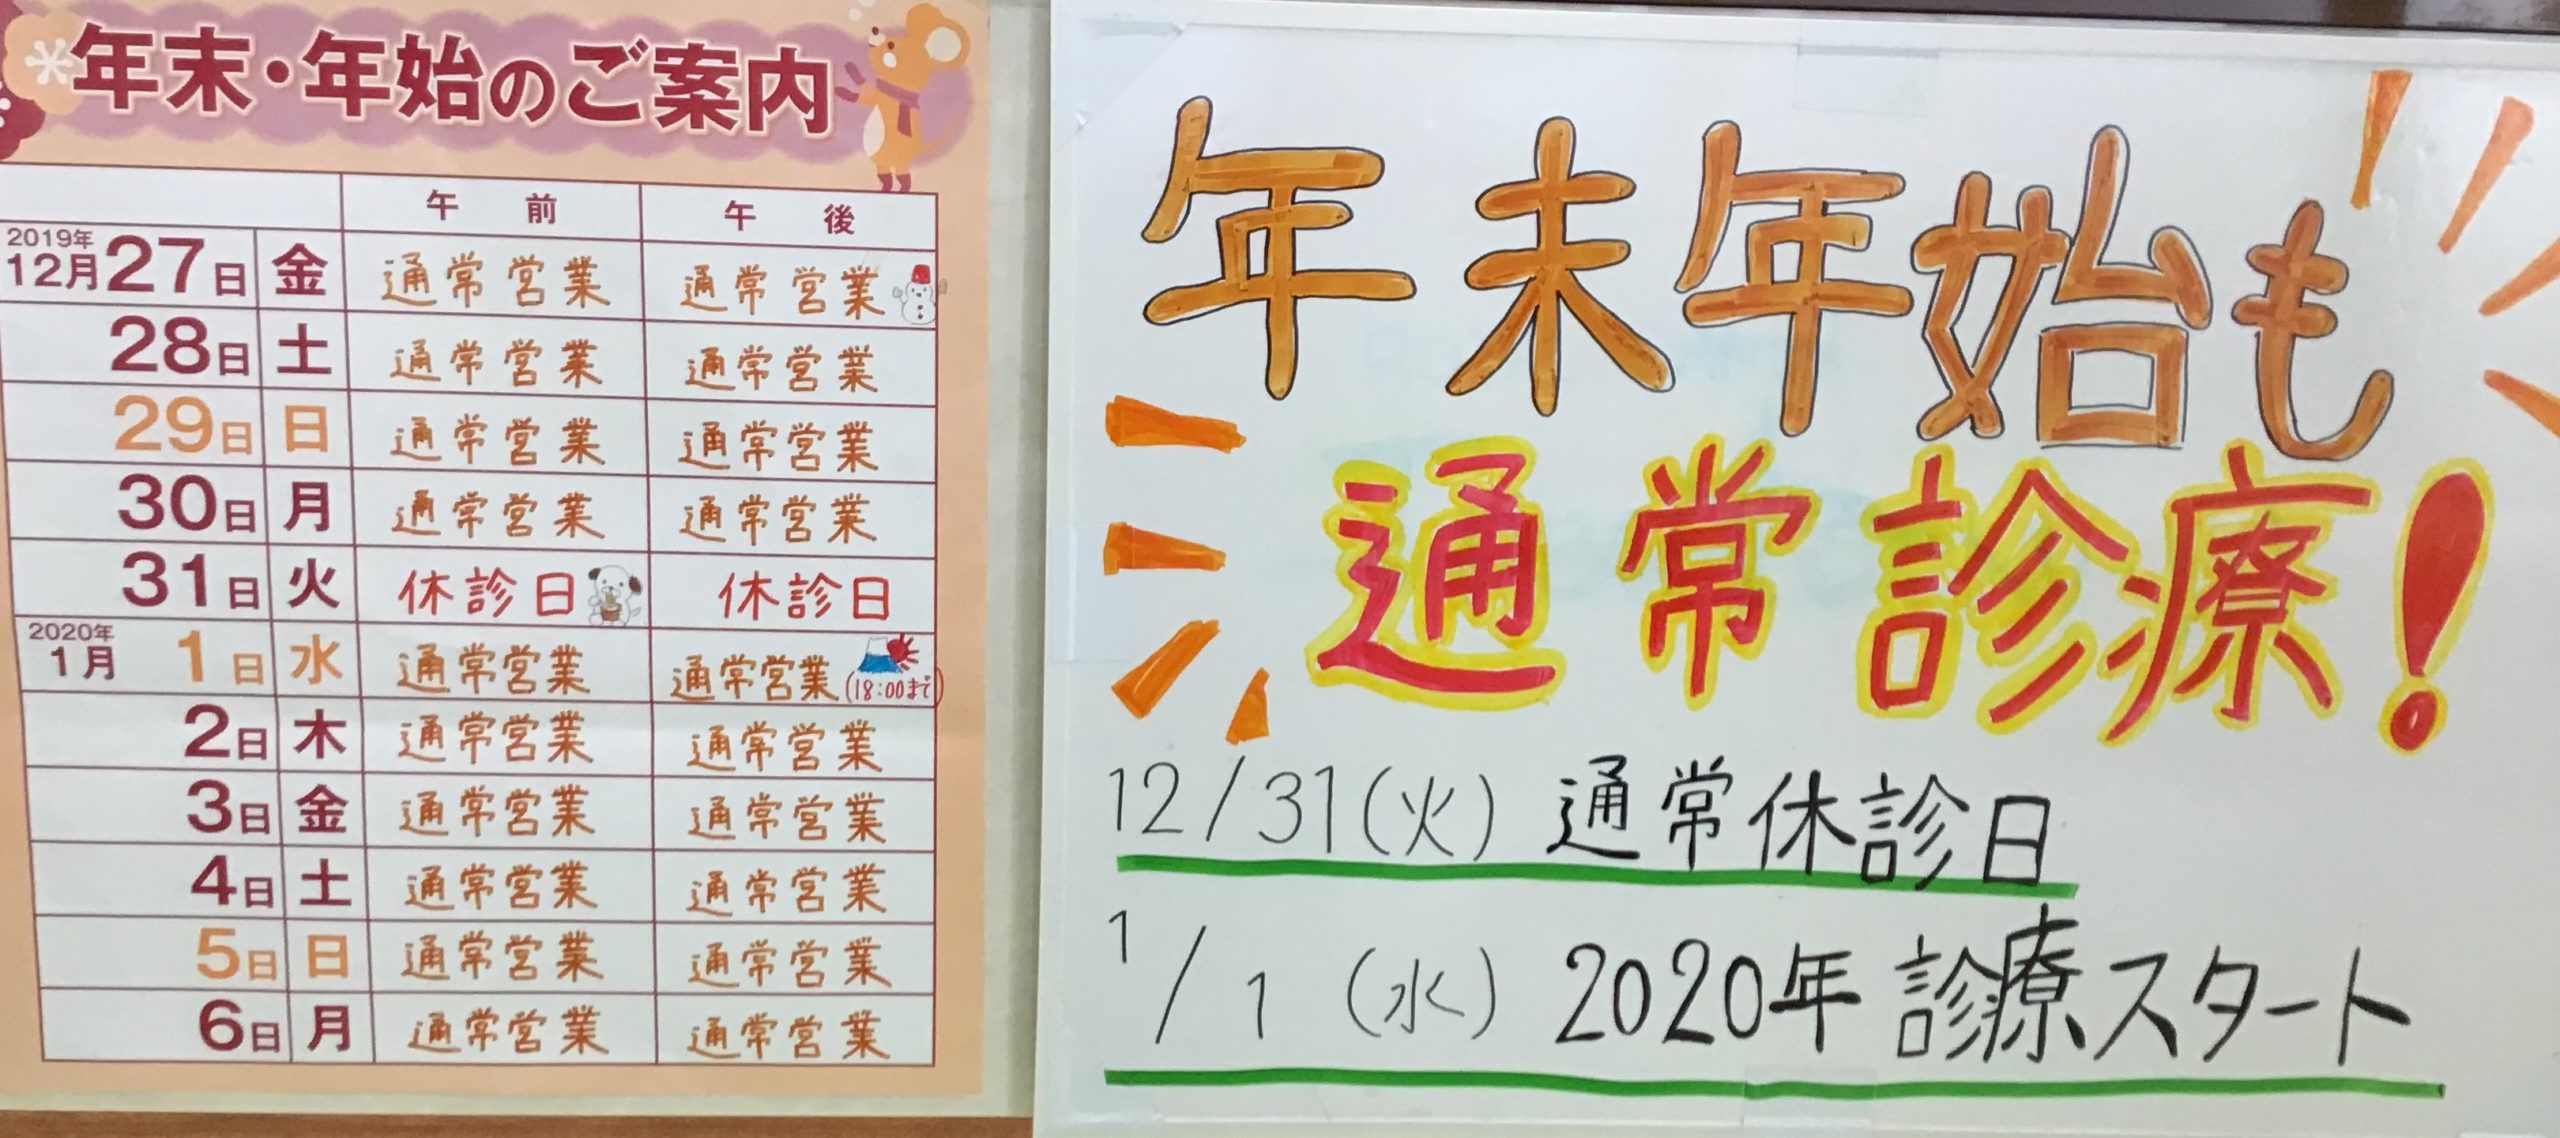 年末・年始のご案内
午前 午後
2019年
12月 27日 金 通常営業 通常営業
28日 土 通常営業 通常営業
29日 日 通常営業 通常営業
30日 月 通常営業 通常営業
31日 火 休診日 休診日
2020年
1月 1日 水 通常営業 通常営業(18:00まで)
2日 木 通常営業 通常営業
3日 金 通常営業 通常営業
4日 土 通常営業 通常営業
5日 日 通常営業 通常営業
6日 月 通常営業 通常営業
年末年始も
通常診療!
12/31(火) 通常休診日
1/1(水) 2020年 診療スタート